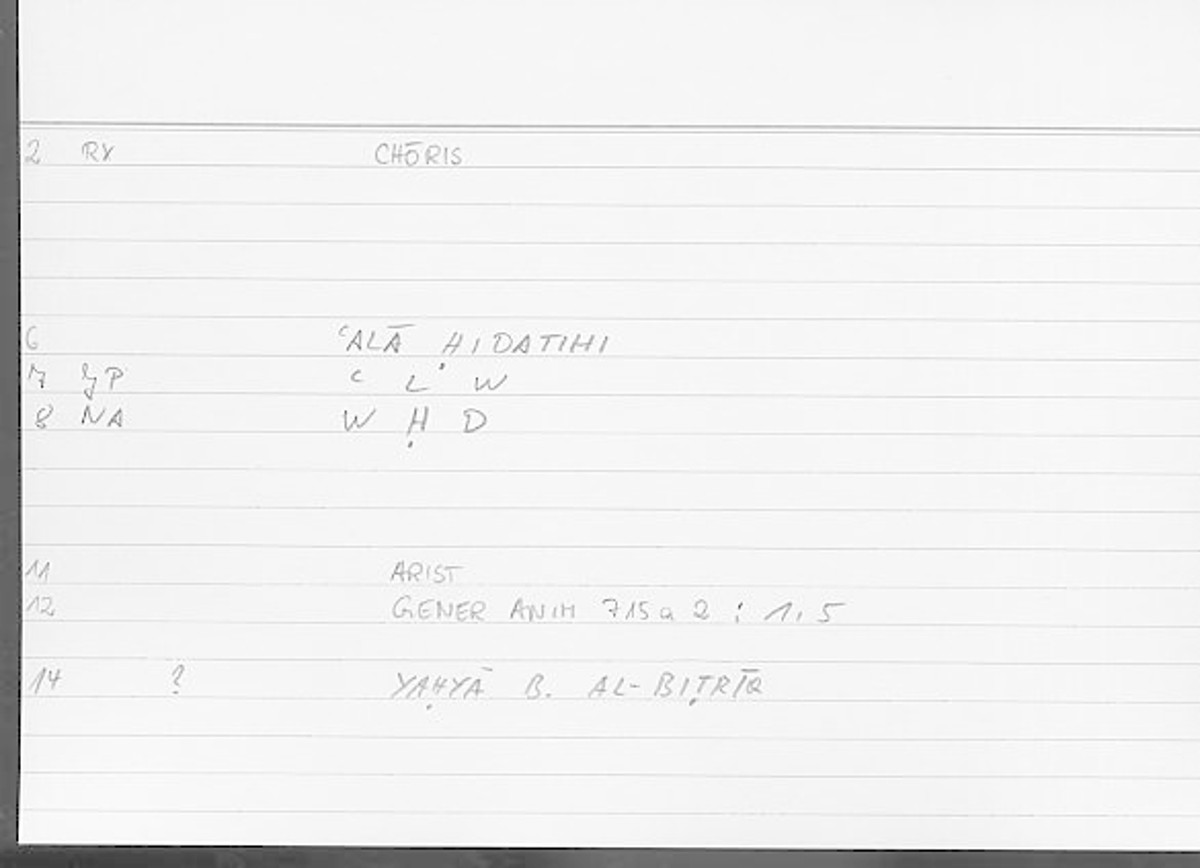 2 RX CHŌRIS
6 ʿALĀ ḤIDATIHI
7 GP ʿ L W
8 NA W Ḥ D
11 ARIST
12 GENER ANIM 715a 2 : 1,5
14 ? YAḤYĀ B. AL-BIṬRĪQ